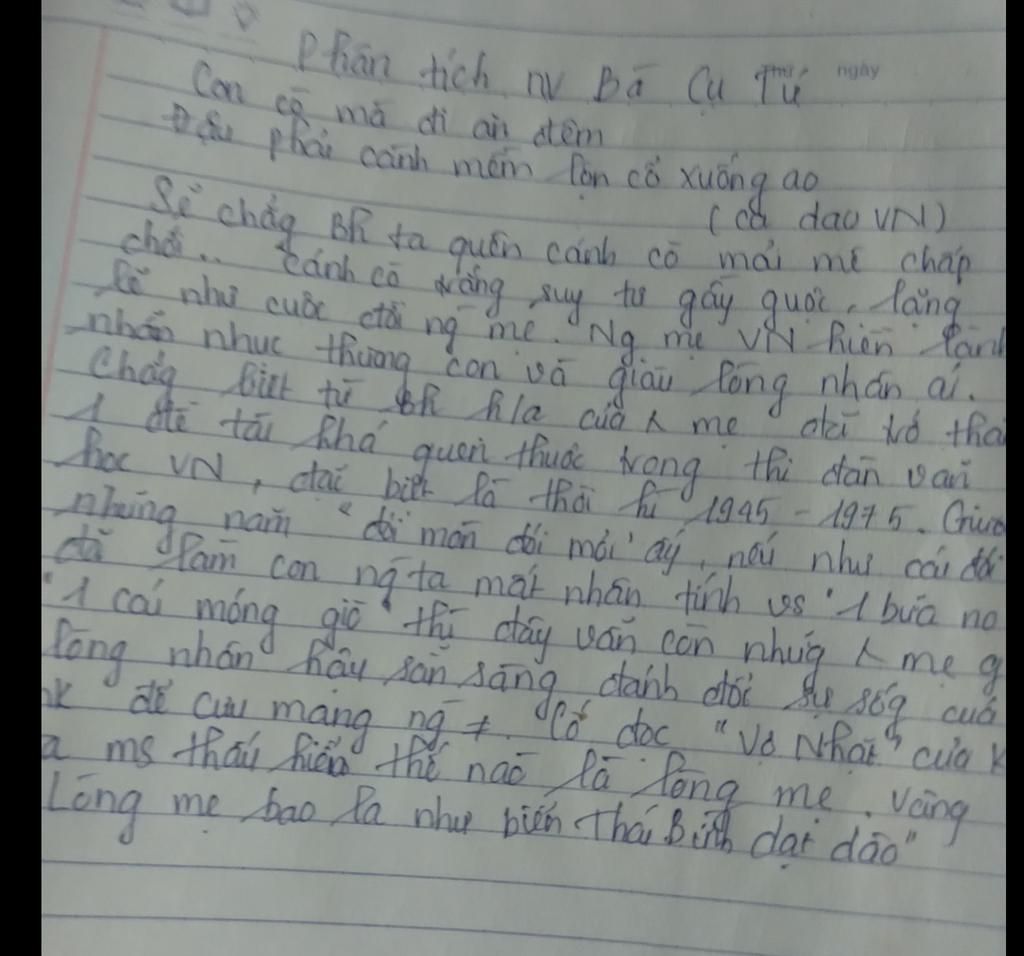 Phân tích NV Bà Cụ Tứ
Thứ ngày
Con cò mà đi ăn đêm
Đậu phải cành mềm lộn cổ xuống ao
(ca dao VN)
Sẽ chẳg bh ta quên cánh cò mải mê chấp
chới.. Cánh cò trắng suy tư gầy guộc, lặng
lẽ như cuộc đời ng mẹ. Ng mẹ VN hiền lành
nhẫn nhục thương con và giàu lòng nhân ái.
Chẳg biết từ bh h/a của mẹ đã trở thà
1 đề tài khá quen thuộc trong thi đàn văn
học VN, đặc biệt là thời kì 1945 - 1975. Giữa
những năm "đói mòn đói mỏi" ấy, nếu như cái đói
đã làm con ng ta mất nhân tính vs "1 bữa no
"1 cái móng giò" thì đây vẫn còn nhữg mẹ g
lòng nhân hậu sẵn sàng đánh đổi sự sốg của
k để cưu mang ng ≠. Có đọc "Vợ Nhặt" của K
a ms thấu hiểu thế nào là lòng mẹ. Vâng
Lòng mẹ bao la như biển Thái Bình dạt dào"